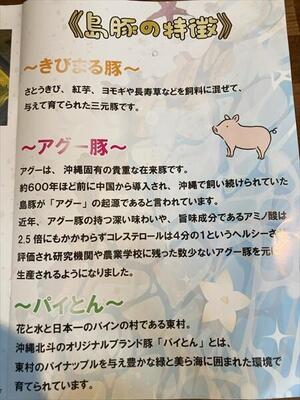 《島豚の特徴》
〜きびまる豚〜
さとうきび、紅芋、ヨモギや長寿草などを飼料に混ぜて、
与えて育てられた三元豚です。
〜アグー豚〜
アグーは、沖縄固有の貴重な在来豚です。
約600年ほど前に中国から導入され、沖縄で飼い続けられていた
島豚が「アグー」の起源であると言われています。
近年、アグー豚の持つ深い味わいや、旨味成分であるアミノ酸は
2.5倍にもかかわらずコレステロールは4分の1というヘルシーさ
評価され研究機関や農業学校に残った数少ないアグー豚を元に
生産されるようになりました。
〜パイとん〜
花と水と日本一のパインの村である東村。
沖縄北斗のオリジナルブランド豚「パイとん」とは、
東村のパイナップルを与え豊かな緑と美ら海に囲まれた環境で
育てられています。